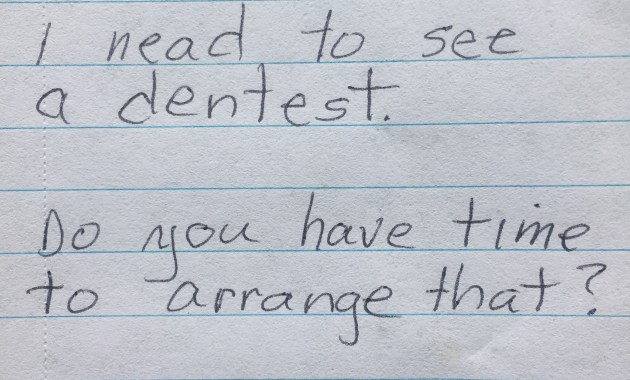 I nead to see
a dentest.
Do you have time
to arrange that?